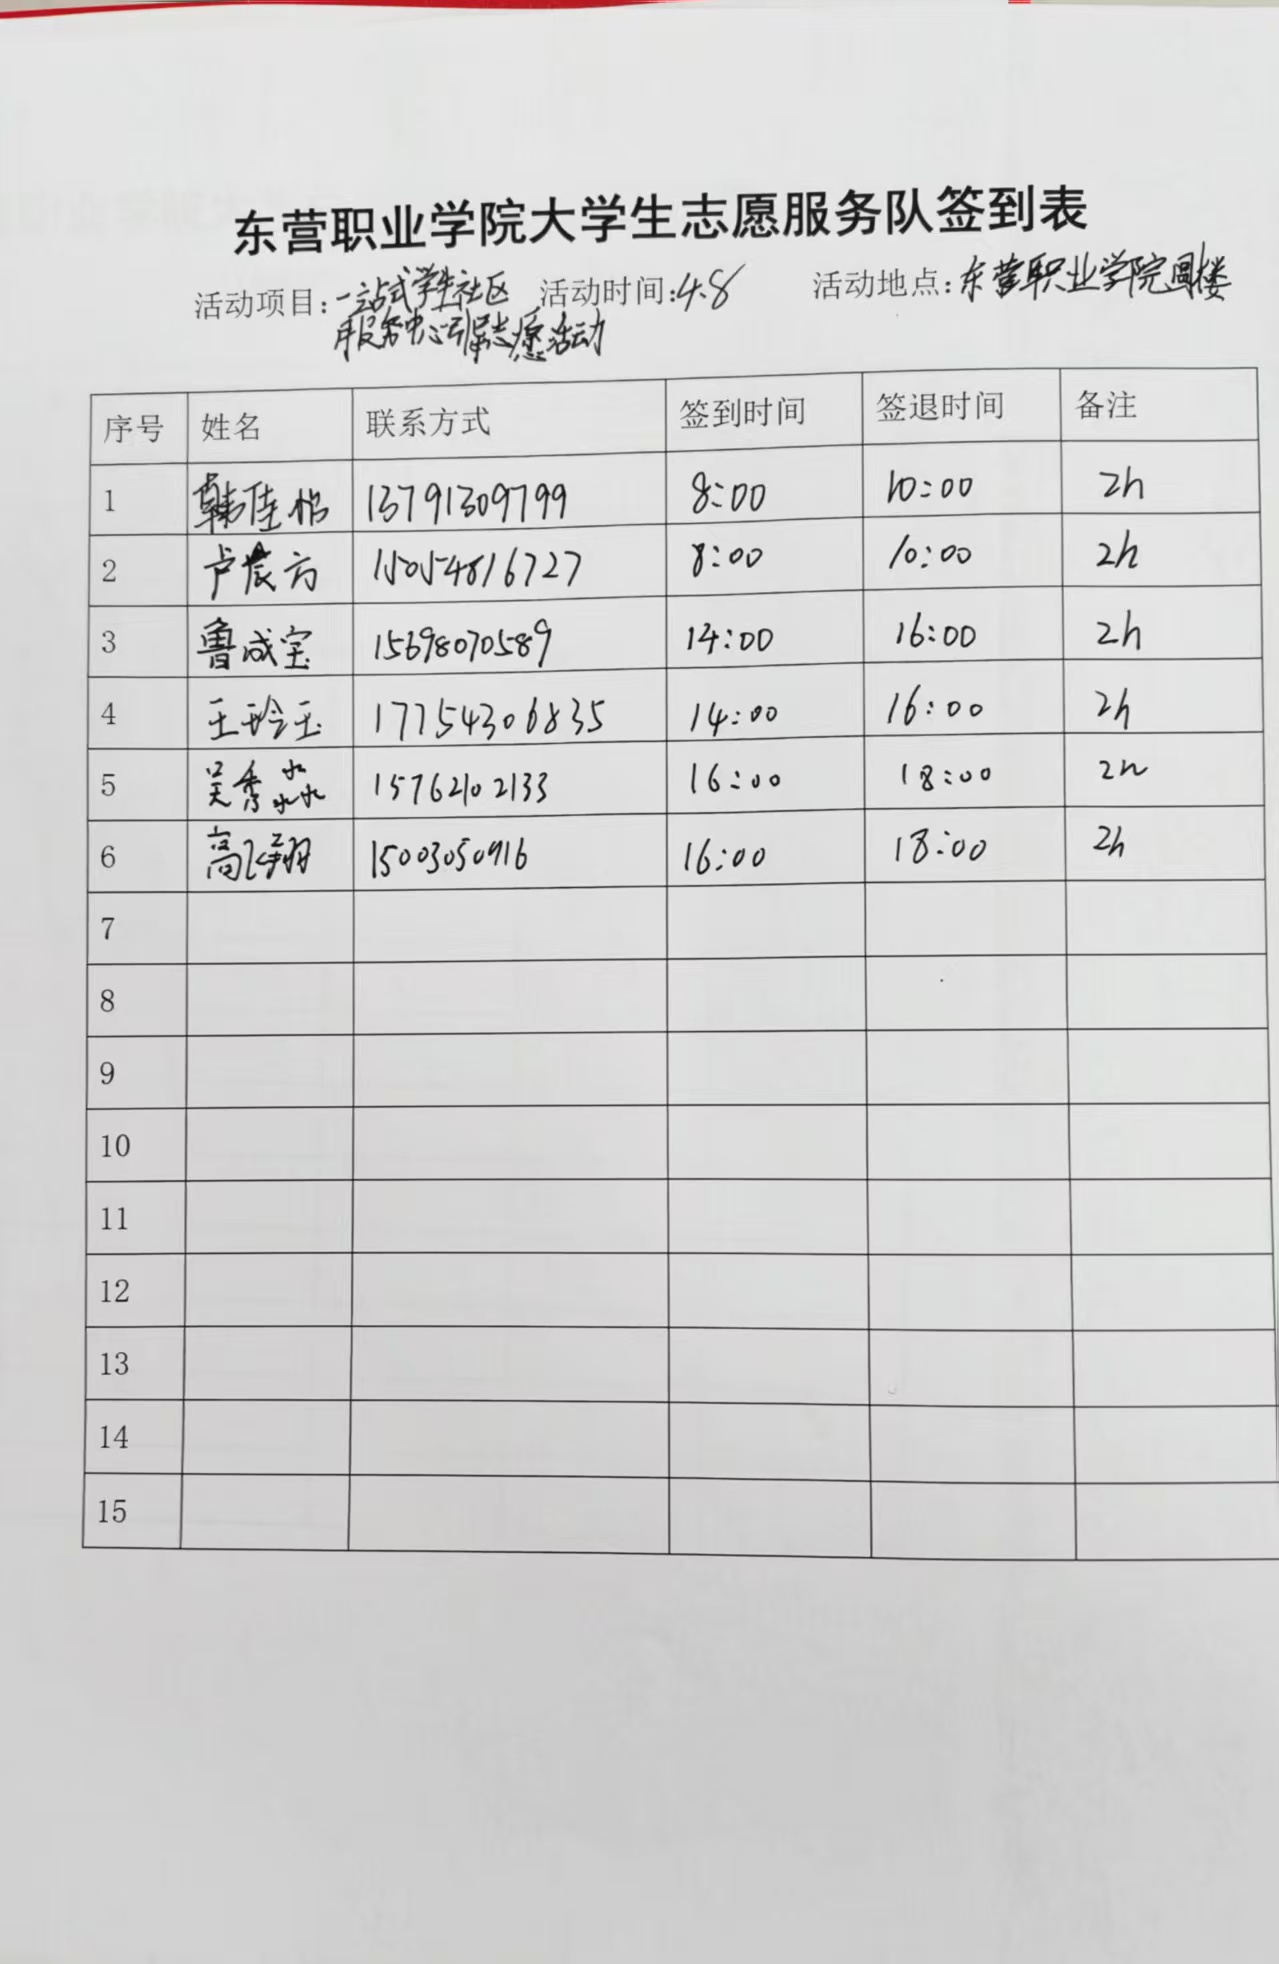 东营职业学院大学生志愿服务队签到表
活动项目:一站式学生社区 活动时间:4.8 活动地点:东营职业学院圆楼
服务中心引导志愿活动
序号 姓名 联系方式 签到时间 签退时间 备注
1 韩佳怡 13791309799 8:00 10:00 2h
2 卢晨方 15054816727 8:00 10:00 2h
3 鲁成宝 15698070589 14:00 16:00 2h
4 王玲玉 17754306835 14:00 16:00 2h
5 吴秀淼 15762102133 16:00 18:00 2h
6 高飞翔 15003050916 16:00 18:00 2h
7
8
9
10
11
12
13
14
15